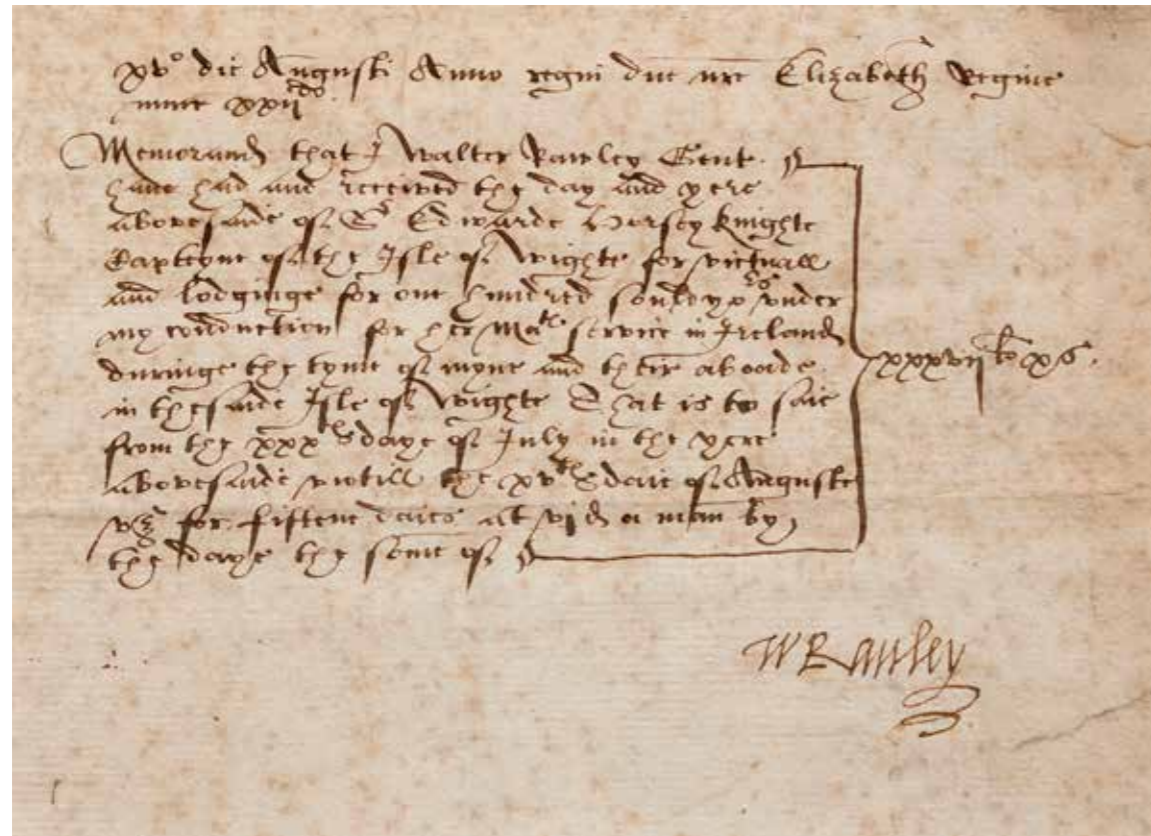 xv° die Augusti Anno regni dne nre Elizabeth Regine
nunc xxii do.
Memorand that I Walter Rawley Gent.
have had and received the day and yere
abovesaide of Sr Edwarde Horsey knighte
Capteyne of the Isle of Wighte for victuall
and lodginge for one hundred souldyrs under
my conduction for her Mats service in Ireland
duringe the tyme of myne and their aboade.
in thesaide Isle of Wighte That is to saie
from the xxxth daye of July in the yere
abovesaide untill the xvth daie of Auguste
vz for fiftene daies at vjd a man by
the daye the some of
xxxvii li xs.
WRauley